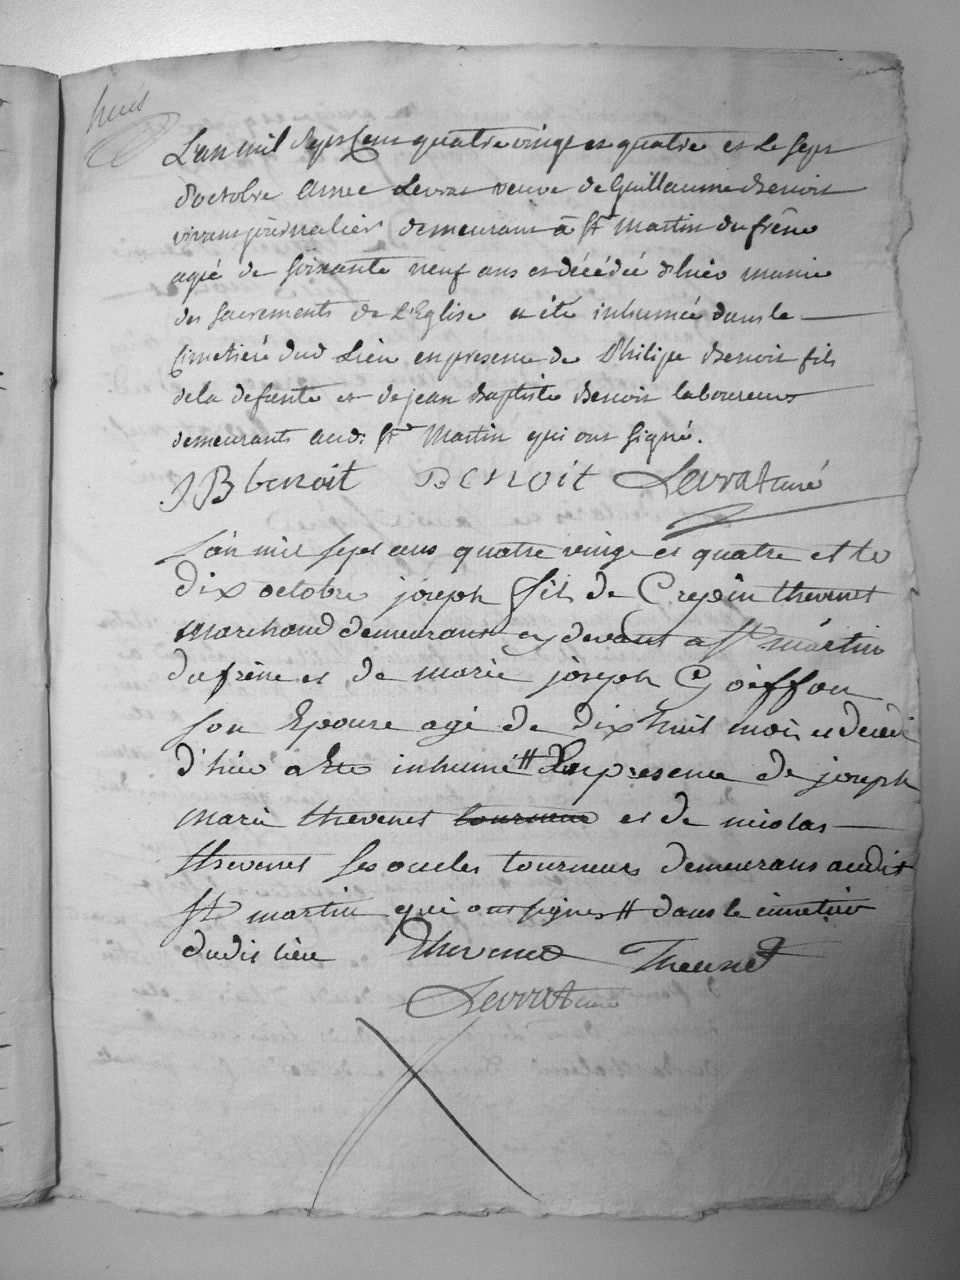 huit
L'an mil sept cent quatre vingt et quatre et le sept
d'octobre anne Levrat veuve de Guillaume Benoit
vivant journalier demeurant à St martin du frêne
agée de soixante neuf ans et décédée d'hier munie
des sacrements de L'Eglise a été inhumée dans le
cimetière dud Lieu en presence de Philipe Benoit fils
de la defunte et de jean Baptiste Benoit laboureurs
demeurants aud: St Martin qui ont signé.
JB benoit BENOIT Levrat curé
L'an mil sept cens quatre vingt et quatre et le
dix octobre joseph fils de Crepin thevenet
marchand demeurant cy devant a St martin
du frêne et de marie joseph Goiffon
son Epouse agé de dix huit mois et decedé
d'hier a ete inhumé # En presence de joseph
marie thevenet tourneur et de nicolas
thevenet ses oncles tourneurs demeurans audit
St martin qui ont signes # dans le cimetier
dudit lieu thevenet Thevenet
Levrat curé